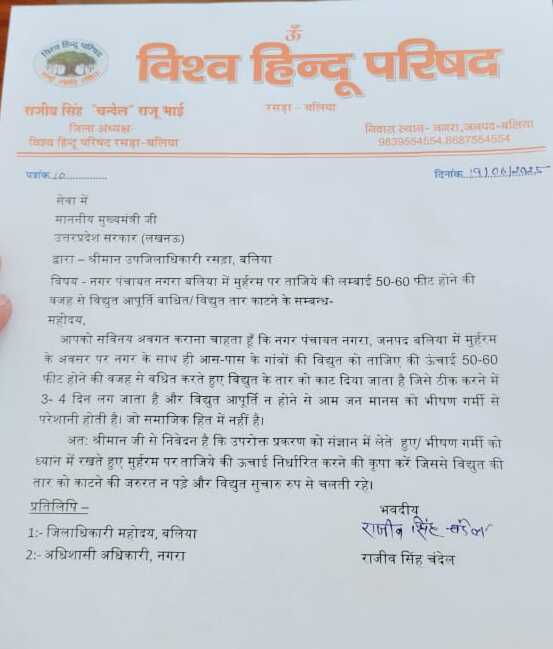 ॐ
विश्व हिन्दू परिषद
विश्व हिन्दू परिषद
राजीव सिंह "चन्देल" राजू भाई
रसड़ा - बलिया
जिला अध्यक्ष
निवास स्थान- नगरा, जनपद-बलिया
विश्व हिन्दू परिषद रसड़ा-बलिया
9839554554, 8687554554
पत्रांक 10
दिनांक 19/06/2025
सेवा में
माननीय मुख्यमंत्री जी
उत्तरप्रदेश सरकार (लखनऊ)
द्वारा – श्रीमान उपजिलाधिकारी रसड़ा, बलिया
विषय - नगर पंचायत नगरा बलिया में मुर्हरम पर ताजिये की लम्बाई 50-60 फीट होने की
वजह से विद्युत आपूर्ति बाधित/ विद्युत तार काटने के सम्बन्ध-
महोदय,
आपको सविनय अवगत कराना चाहता हूँ कि नगर पंचायत नगरा, जनपद बलिया में मुर्हरम
के अवसर पर नगर के साथ ही आस-पास के गांवों की विद्युत को ताजिए की ऊंचाई 50-60
फीट होने की वजह से वधित करते हुए विद्युत के तार को काट दिया जाता है जिसे ठीक करने में
3- 4 दिन लग जाता है और विद्युत आपूर्ति न होने से आम जन मानस को भीषण गर्मी से
परेशानी होती है। जो समाजिक हित में नहीं है।
अत: श्रीमान जी से निवेदन है कि उपरोक्त प्रकरण को संज्ञान में लेते हुए/ भीषण गर्मी को
ध्यान में रखते हुए मुर्हरम पर ताजिये की ऊचाई निर्धारित करने की कृपा करें जिससे विद्युत की
तार को काटने की जरुरत न पड़े और विद्युत सुचारु रुप से चलती रहे।
प्रतिलिपि –
भवदीय
1:- जिलाधिकारी महोदय, बलिया
राजीव सिंह चंदेल
2:- अधिशासी अधिकारी, नगरा
राजीव सिंह चंदेल